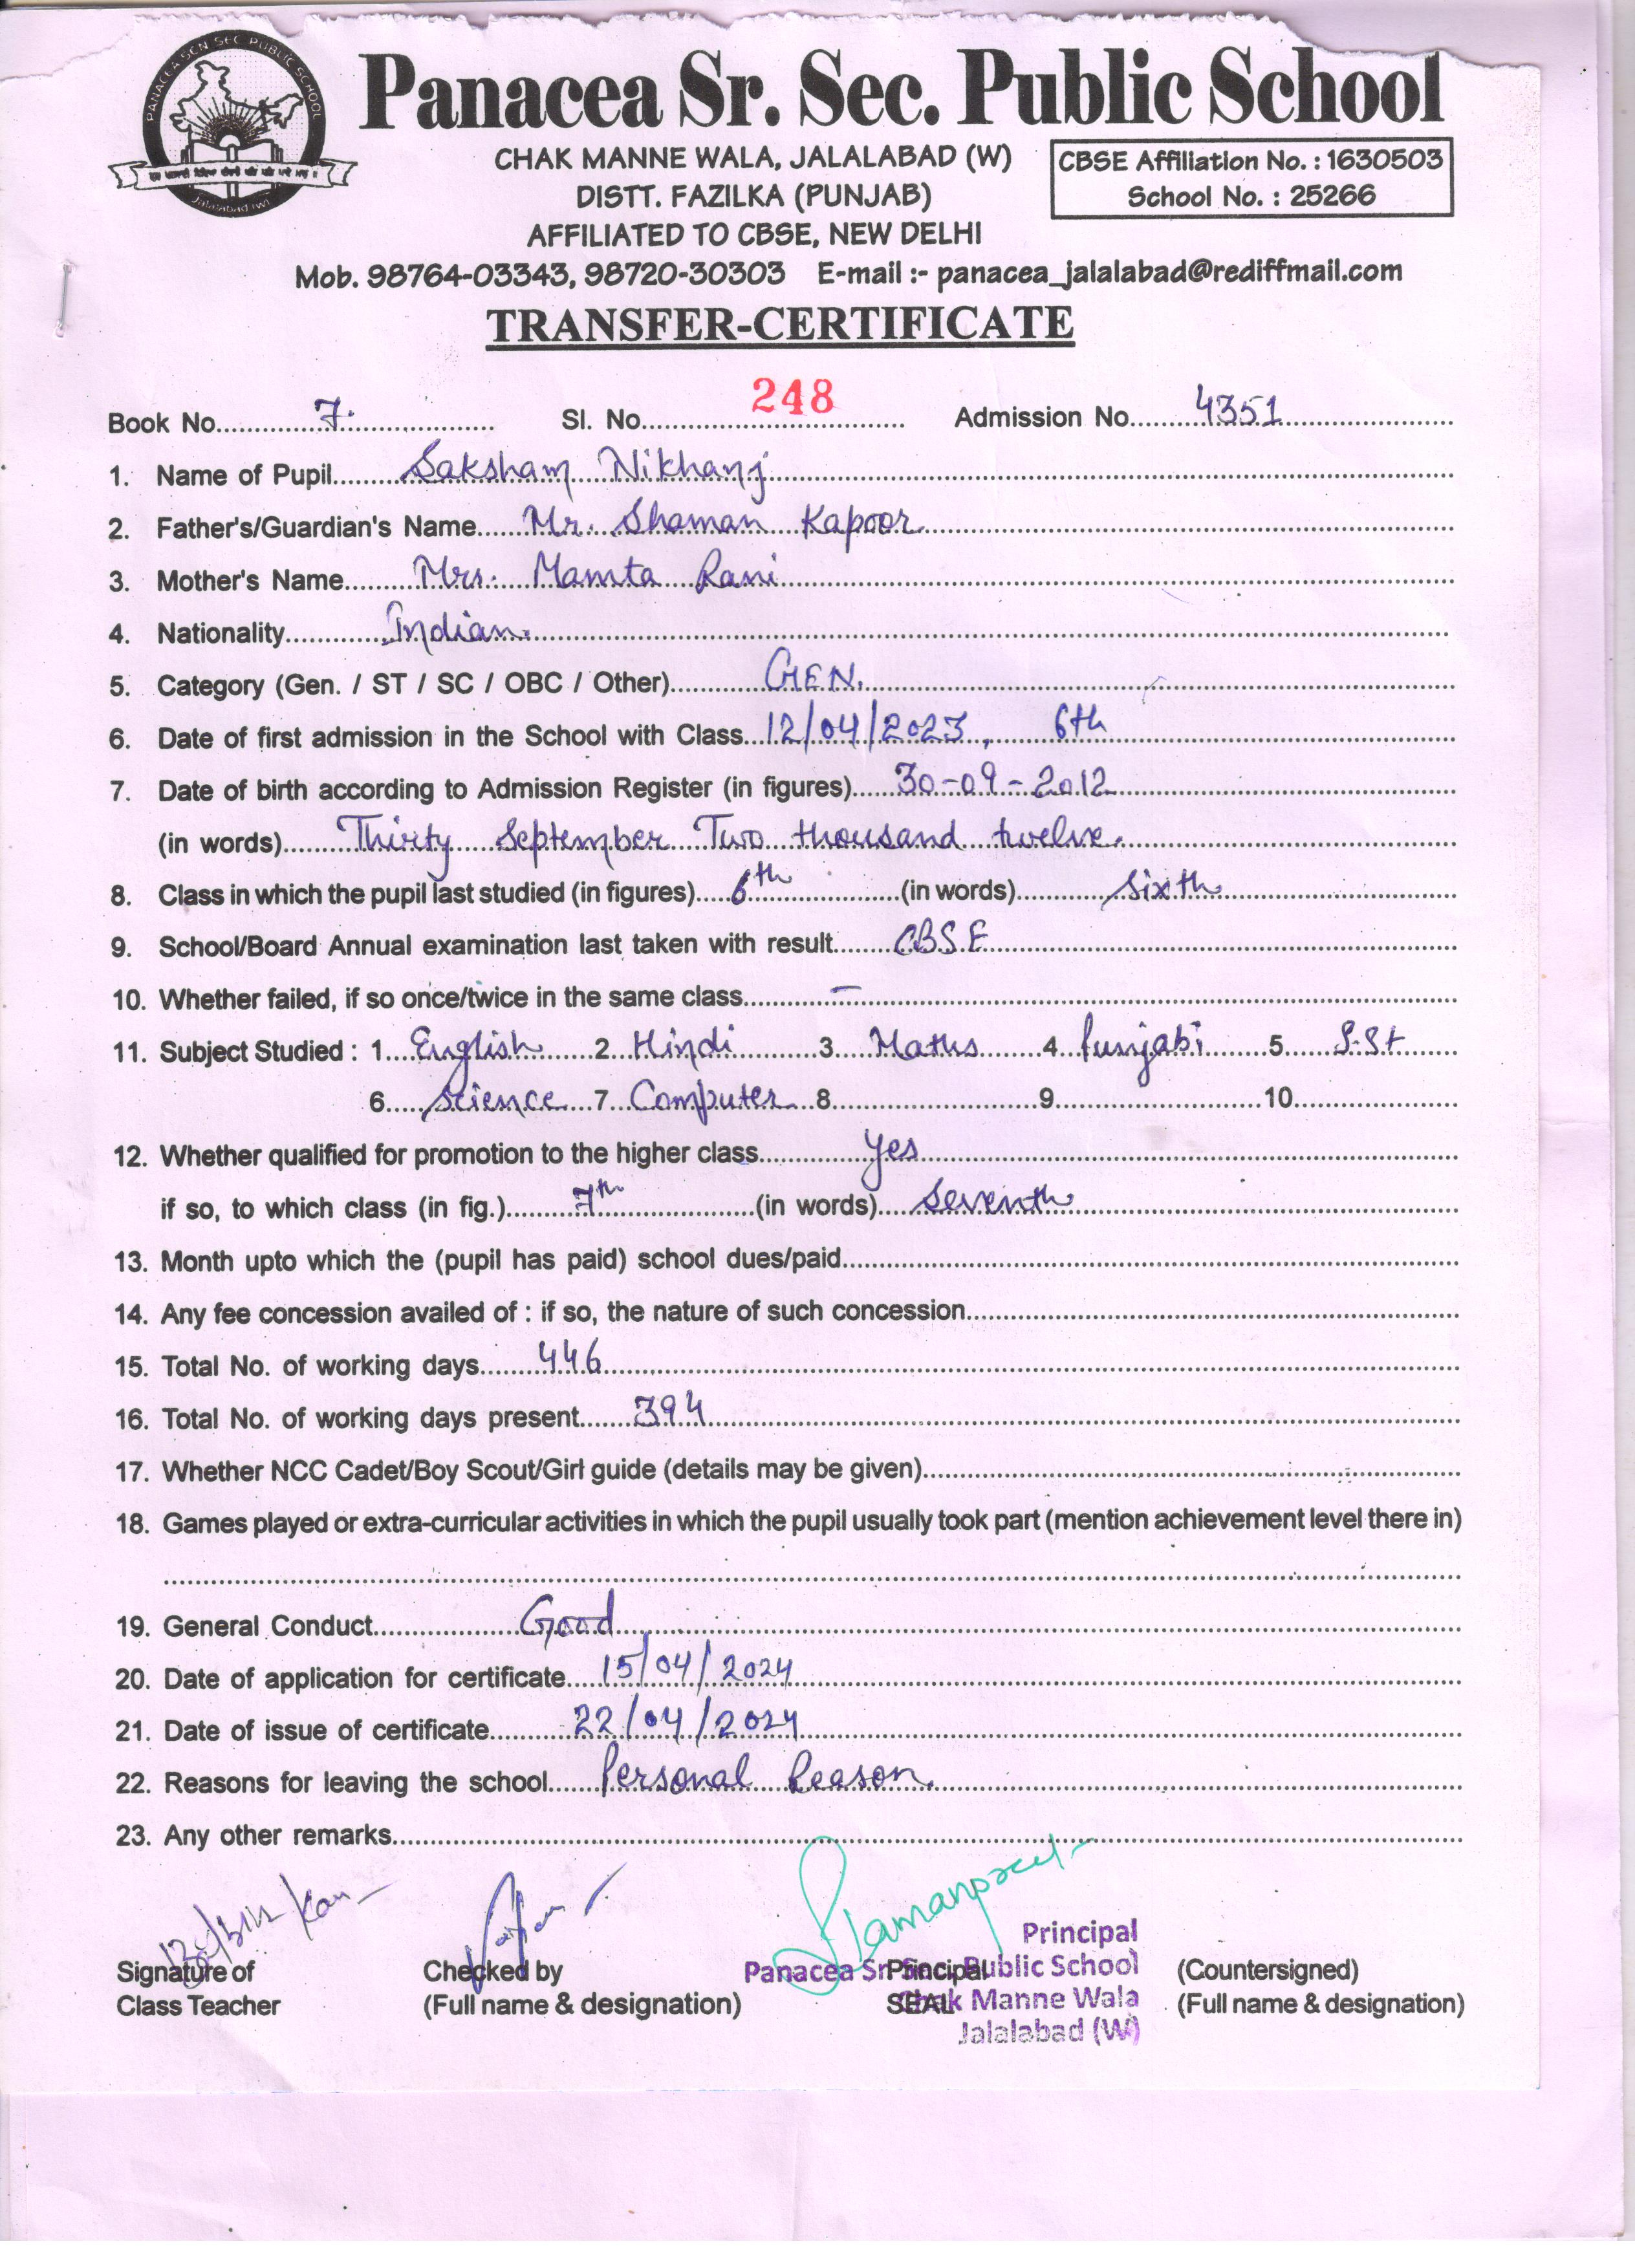 PANACEA SEN SEC PUBLIC SCHOOL
Jalalabad (W)
Panacea Sr. Sec. Public School
CHAK MANNE WALA, JALALABAD (W)
DISTT. FAZILKA (PUNJAB)
AFFILIATED TO CBSE, NEW DELHI
CBSE Affiliation No. : 1630503
School No. : 25266
Mob. 98764-03343, 98720-30303 E-mail :- panacea_jalalabad@rediffmail.com
TRANSFER-CERTIFICATE
Book No. 7. Sl. No. 248 Admission No. 4351
1. Name of Pupil Saksham Nikhanj
2. Father's/Guardian's Name Mr. Shaman Kapoor
3. Mother's Name Mrs. Mamta Rani
4. Nationality Indian.
5. Category (Gen. / ST / SC / OBC / Other) GEN.
6. Date of first admission in the School with Class 12/04/2023, 6th
7. Date of birth according to Admission Register (in figures) 30-09-2012
(in words) Thirty September Two thousand twelve.
8. Class in which the pupil last studied (in figures) 6th (in words) Sixth
9. School/Board Annual examination last taken with result CBSE
10. Whether failed, if so once/twice in the same class —
11. Subject Studied : 1 English 2 Hindi 3 Maths 4 Punjabi 5 S.St
6 Science 7 Computer 8 9 10
12. Whether qualified for promotion to the higher class yes
if so, to which class (in fig.) 7th (in words) Seventh
13. Month upto which the (pupil has paid) school dues/paid
14. Any fee concession availed of : if so, the nature of such concession
15. Total No. of working days 446
16. Total No. of working days present 394
17. Whether NCC Cadet/Boy Scout/Girl guide (details may be given)
18. Games played or extra-curricular activities in which the pupil usually took part (mention achievement level there in)
19. General Conduct Good
20. Date of application for certificate 15/04/2024
21. Date of issue of certificate 22/04/2024
22. Reasons for leaving the school Personal Reason.
23. Any other remarks
Principal
Panacea Sr. Sec. Public School
Chak Manne Wala
Jalalabad (W)
Signature of Checked by Principal (Countersigned)
Class Teacher (Full name & designation) SEAL (Full name & designation)